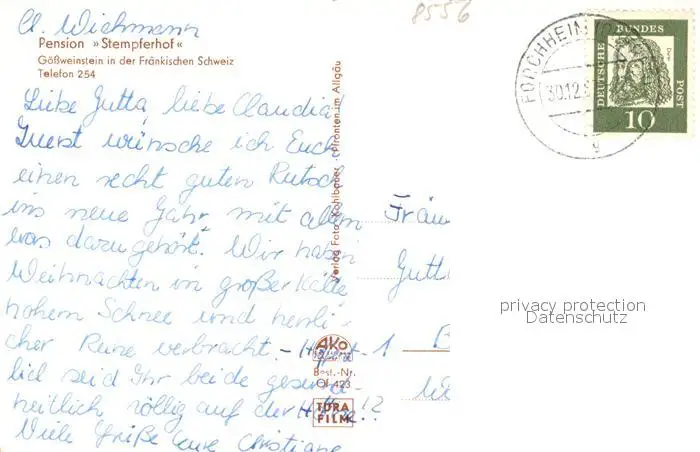 Cl. Wichmann
8556
Pension »Stempferhof«
Gößweinstein in der Fränkischen Schweiz
Telefon 254
Liebe Jutta, liebe Claudia!
Zuerst wünsche ich Euch
einen recht guten Rutsch
ins neue Jahr mit allem
was dazu gehört. Wir haben
Weihnachten in großer Kälte
hohem Schnee und herrli-
cher Ruhe verbracht. – Hoffent-
lich seid Ihr beide gesund-
heitlich völlig auf der Höhe!?
Viele Grüße Eure Christiane
Verlag Foto Kohlbauer, Pfronten im Allgäu
AKO
Best.-Nr.
Of 423
TURA
FILM
FORCHHEIM
30.12.
g
DEUTSCHE BUNDESPOST
Dürer
10
Fräu
Jutt
1 B
privacy protection
Datenschutz